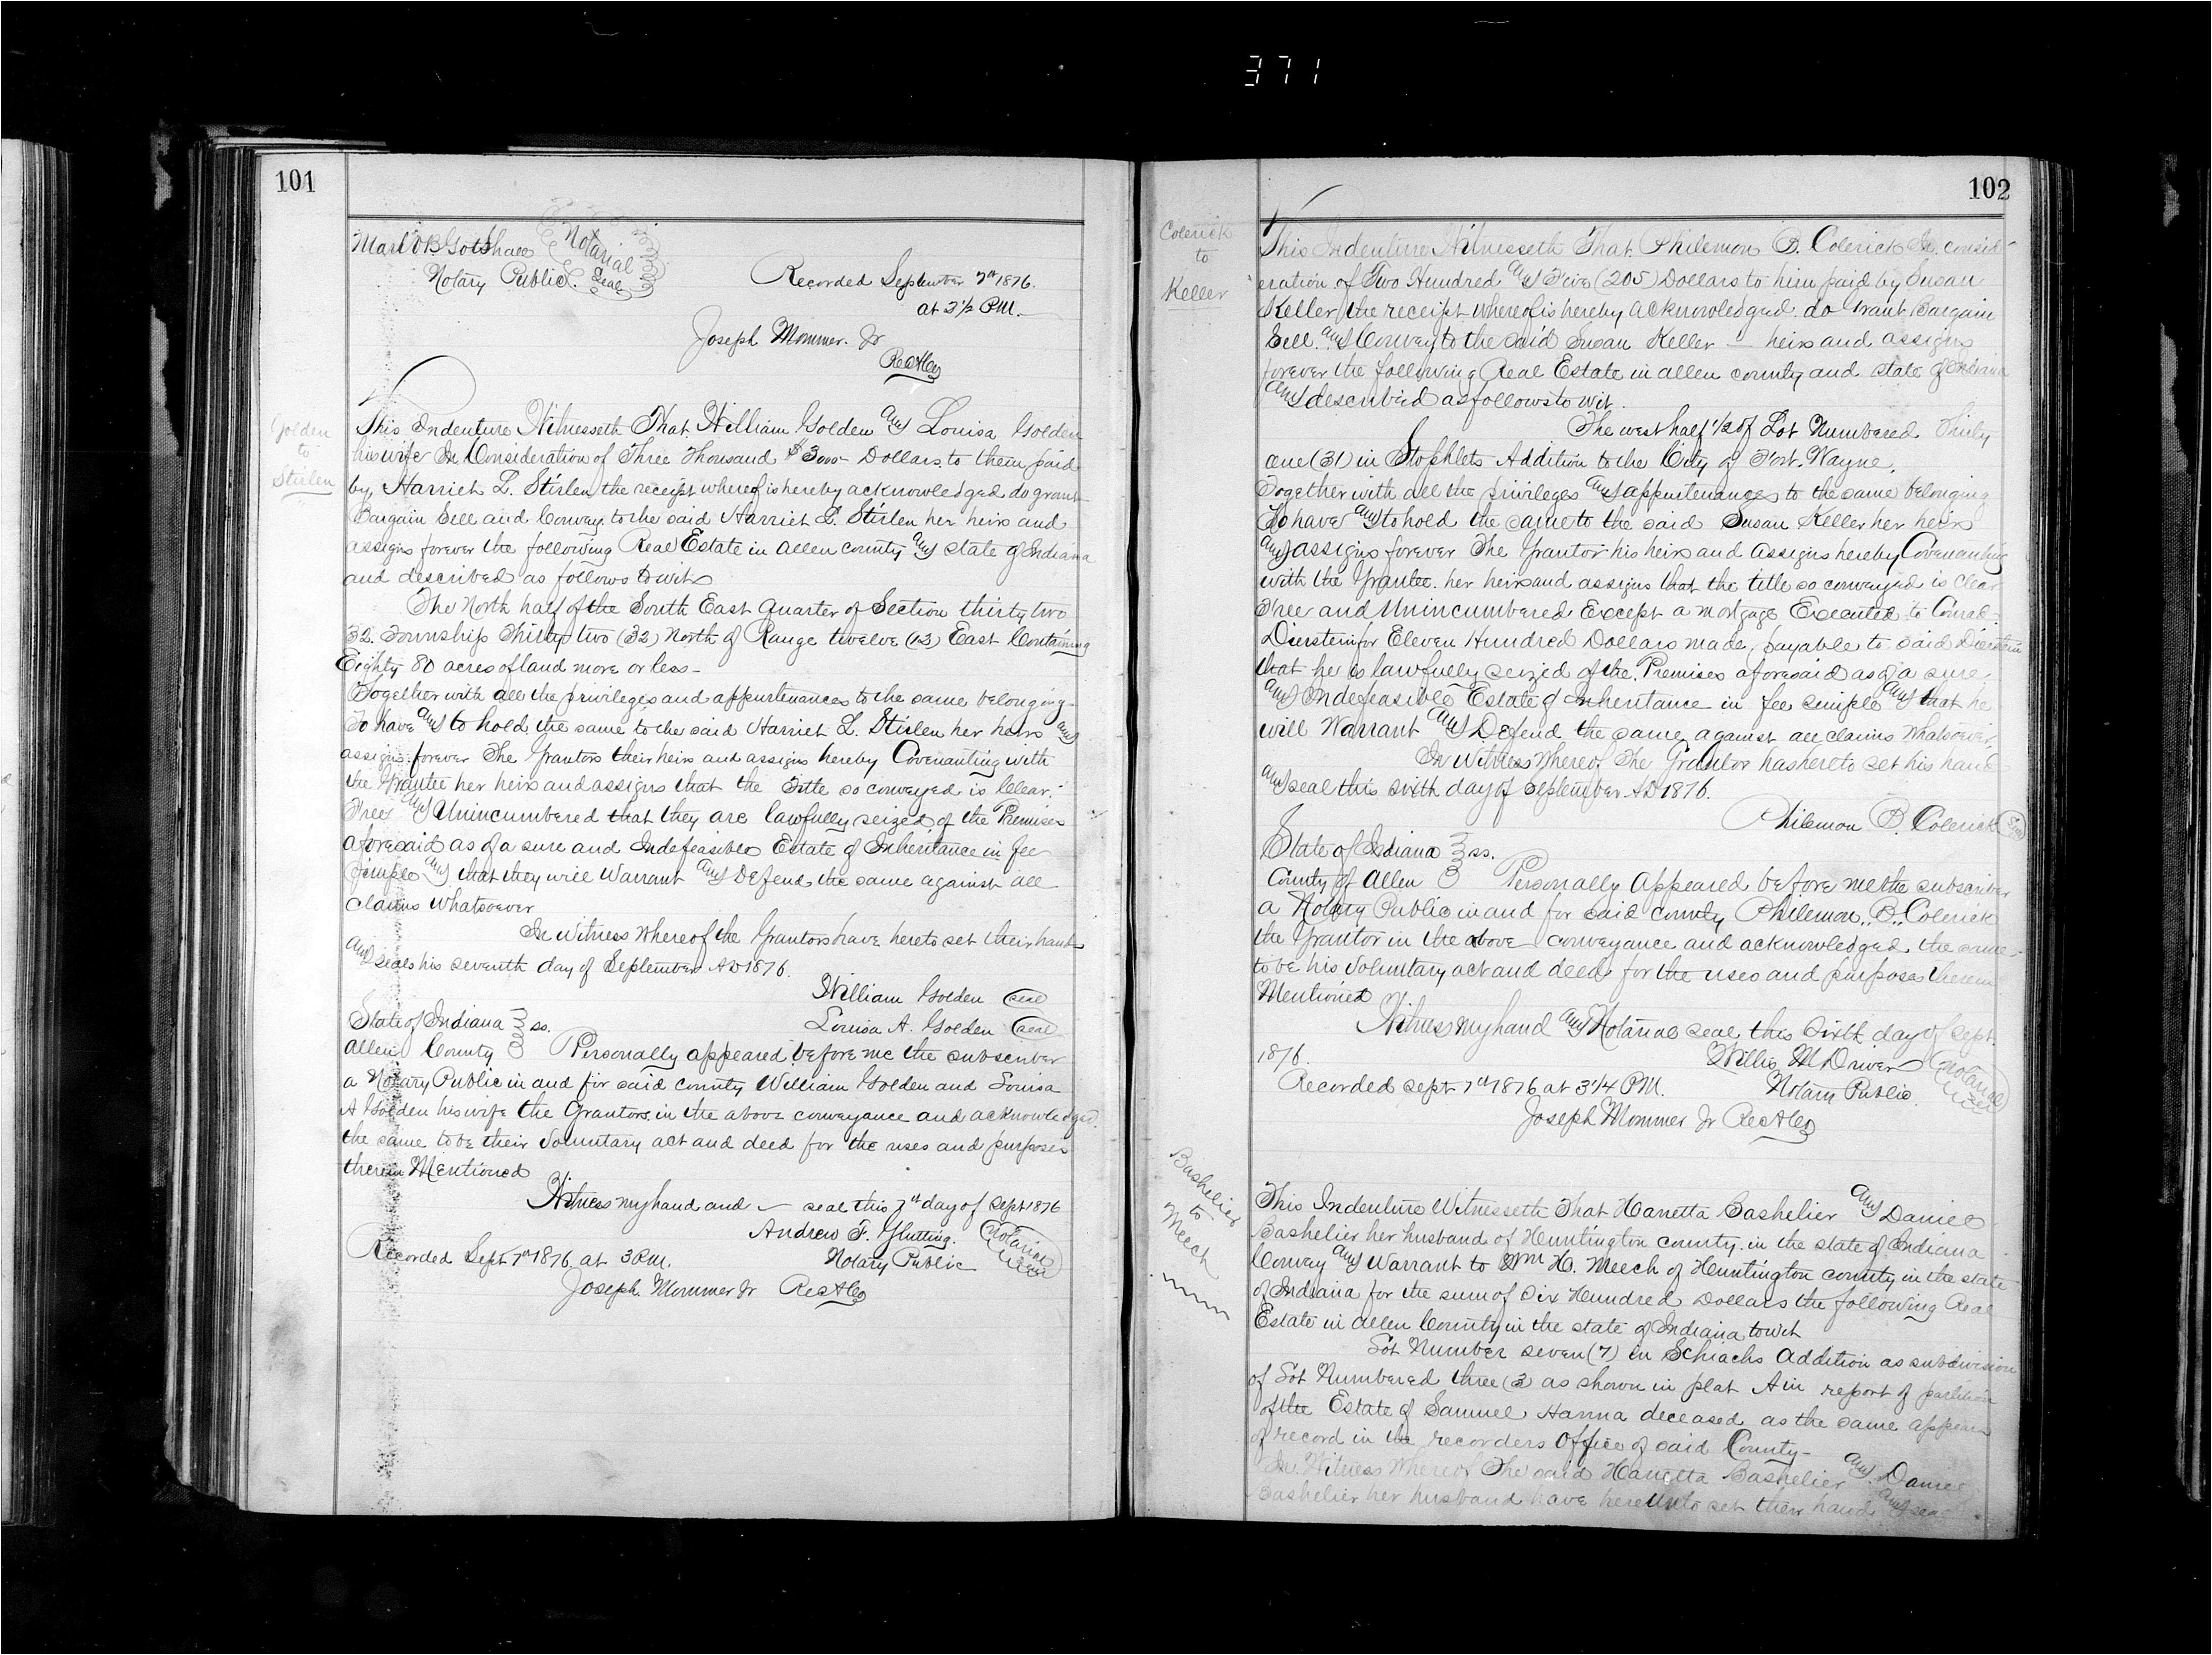 371
101
Mark VB Gotshall Notarial Seal
Notary Public.
Recorded September 7th 1876.
at 3 1/2 PM.
Joseph Mommer. Jr
RecACo
Golden
to
Stirlen
This Indenture Witnesseth That William Golden and Louisa Golden
his wife In Consideration of Three Thousand $3000 Dollars. to them paid
by, Harriet L. Stirlen the receipt whereof is hereby acknowledged do grant
Bargain Sell and Convey to the said Harriet L. Stirlen her heirs and
assigns forever the following Real Estate in Allen county and state of Indiana
and described as follows to wit
The North half of the South East Quarter of Section thirty two
32. Township Thirty two (32) North of Range twelve (12) East Containing
Eighty 80 acres of land more or less-
Together with all the privileges and appurtenances to the same belonging
To have and to hold the same to the said Harriet L. Stirlen her heirs and
assigns forever The Grantors their heirs and assigns hereby Covenanting with
the Grantee her heirs and assigns that the Title so conveyed is Clear.
Free and Unincumbered that they are lawfully seized of the Premises
aforesaid as of a sure and Indefeasible Estate of Inheritance in fee
simple and that they will Warrant and Defend the same against all
claims whatsoever
In Witness Whereof the Grantors have hereto set their hands
and seals his seventh day of September AD 1876.
William Golden seal
State of Indiana ss. Louisa A. Golden seal
Allen County Personally appeared before me the subscriber
a Notary Public in and for said county William Golden and Louisa
A Golden his wife the Grantors in the above conveyance and acknowledged
the same to be their Voluntary act and deed for the uses and purposes
therein Mentioned
Witness my hand and seal this 7th day of Sept 1876
Andrew F. Glutting. Notarial Seal
Recorded Sept 7th 1876 at 3 PM. Notary Public
Joseph Mommer Jr RecACo
102
Colerick
to
Keller
This Indenture Witnesseth That Philemon B. Colerick In consid-
eration of Two Hundred and Five (205) Dollars to him paid by Susan
Keller the receipt whereof is hereby acknowledged. do Grant Bargain
Sell. and Convey to the said Susan Keller — heirs and assigns
forever the following Real Estate in allen county and state of Indiana
and described as follows to wit.
The west half 1/2 of Lot Numbered Thirty
one (31) in Stophlets Addition to the City of Fort. Wayne.
Together with all the privileges and appurtenances to the same belonging
To have and to hold the same to the said Susan Keller her heirs
and assigns forever The Grantor his heirs and assigns hereby Covenanting
with the Grantee. her heirs and assigns that the title so conveyed is Clear
Free and Unincumbered Except a mortgage Executed to Conrad
Dierstein for Eleven Hundred Dollars made, payable to said Dierstein
that he is lawfully seized of the Premises aforesaid as of a sure
and Indefeasible Estate of Inheritance in fee simple and that he
will Warrant and Defend the same against all claims whatsoever,
In Witness Whereof The Grantor has hereto set his hand
and seal this sixth day of September AD 1876.
Philemon B. Colerick Seal
State of Indiana ss.
County of Allen Personally Appeared before me the subscriber
a Notary Public in and for said county Philemon. B. Colerick
the Grantor in the above conveyance and acknowledged the same
to be his Voluntary act and deed for the uses and purposes therein
Mentioned
Witness my hand and Notarial seal this Sixth day of Sept.
1876. Willis M Driver Notarial Seal
Recorded Sept 7th 1876 at 3 1/4 PM. Notary Public.
Joseph Mommer Jr RecACo
Bashelier
to
Meech
This Indenture Witnesseth That Hanetta Bashelier and Daniel
Bashelier her husband of Huntington county. in the state of Indiana
Convey and Warrant to Wm H. Meech of Huntington county in the state
of Indiana for the sum of Six Hundred Dollars the following Real
Estate in Allen County in the state of Indiana to wit
Lot Number seven (7) in Schiachs Addition as subdivision
of Lot Numbered three (3) as shown in plat A in report of partition
of the Estate of Samuel Hanna deceased as the same appears
of record in the recorders Office of said County-
In Witness Whereof The said Hanetta Bashelier and Daniel
Bashelier her husband have hereunto set their hand and sea